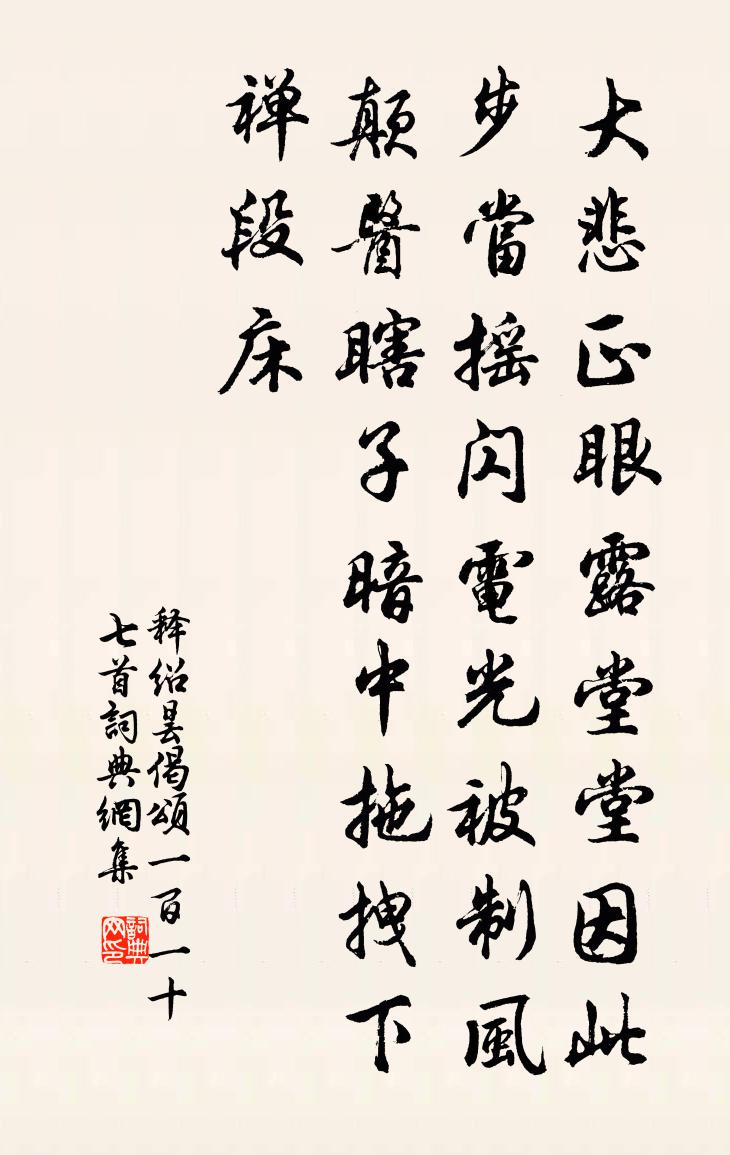 大悲正眼露堂堂因此
步當摇闪電光被制風
颠醫瞎子暗中拖拽下
禅段床
释绍昙偈頌一百一十
七首詞典網集
詞典网印